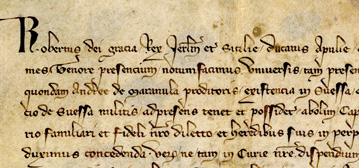 Robertus dei gracia Rex Jerlm et Sicilie ducatus Apulie
mes Tenore presencium notum facimus Universis tam presen
quondam Andree de Maramula proditoris existencia in Suessa
cio de Suessa militis adpresens tenet et possidet abolim Cap
rio familiari et fideli nro diletto et heredibus suis in perp
duximus concedenda ne tam in Curie nre dispendium